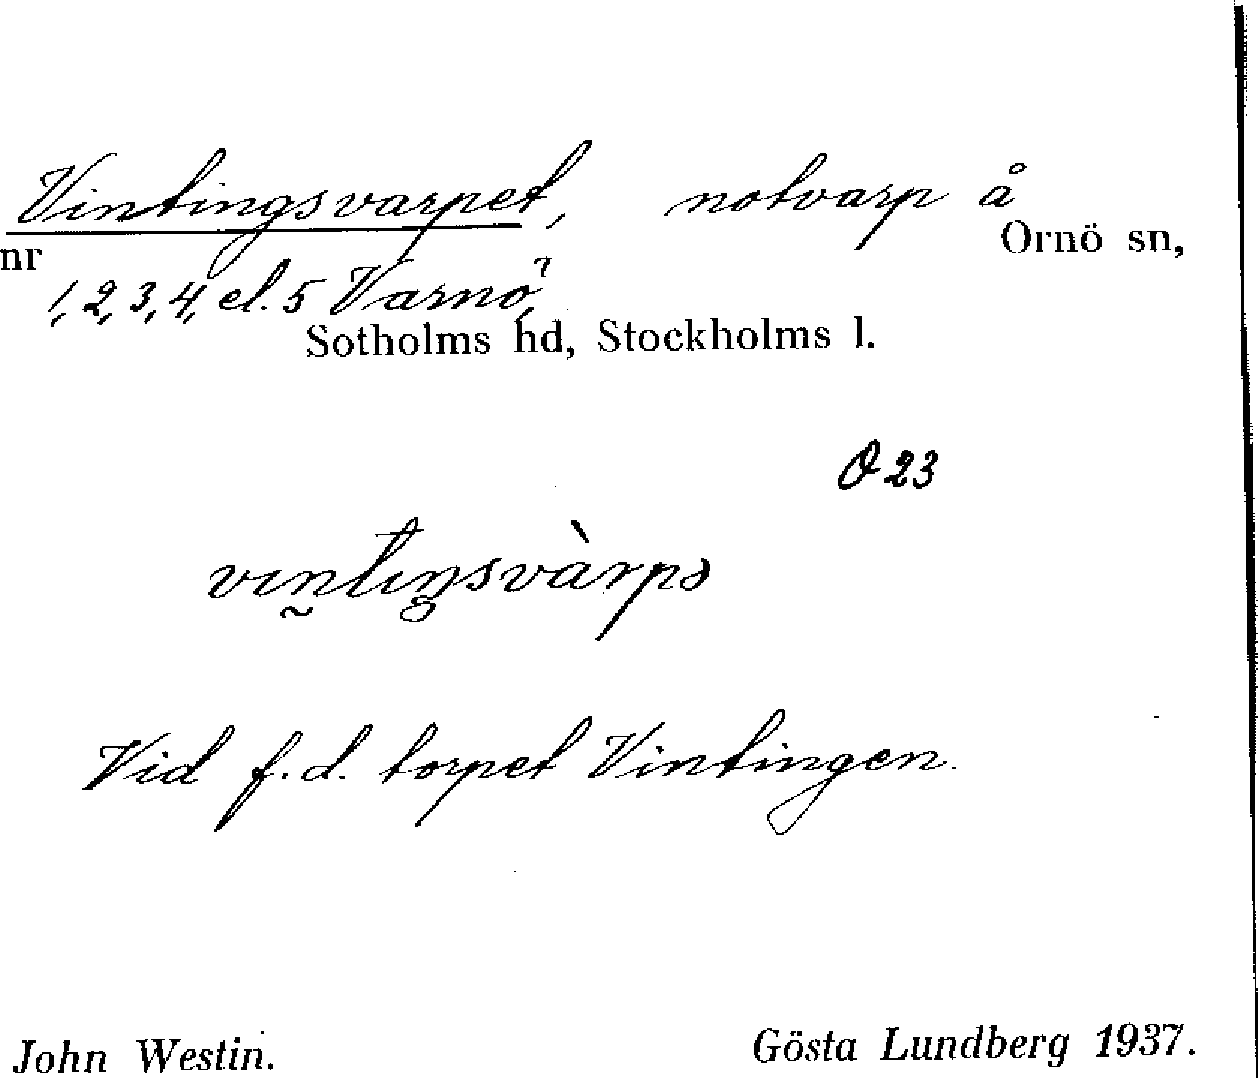 Vintingsvarpet, notvarp å
Ornö sn,
nr
1, 2, 3, 4, el. 5 Varnö?,
Sotholms hd, Stockholms l.
O 23
vın̰tıŋsvàrpə
Vid f. d. torpet Vintingen.
John Westin.
Gösta Lundberg 1937.